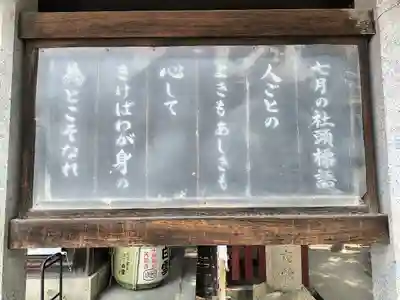 七月の社頭標語
人ごとの
よきもあしきも
心して
きけばわが身の
為とこそなれ